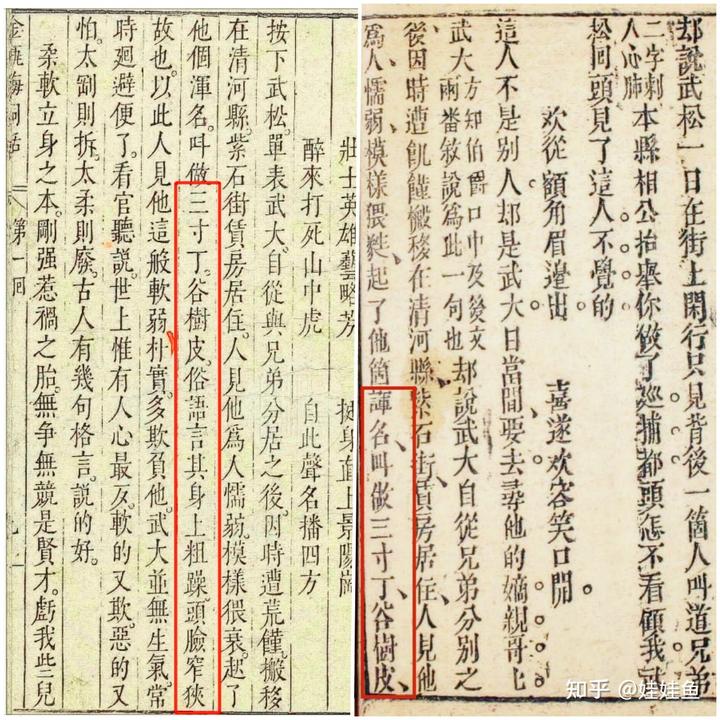 壯士英雄藝略芳　挺身直上景陽崗
醉來打死山中虎　自此聲名播四方
按下武松。單表武大。自從與兄弟分居之後。因時遭荒饉。搬移
在清河縣。紫石街賃房居住。人見他爲人懦弱。模樣猥衰。起了
他個渾名。叫做三寸丁。谷樹皮。俗語言其身上粗躁。頭臉窄狹
故也。以此人見他這般軟弱朴實。多欺負他。武大並無生氣。常
時迴避便了。看官聽說。世上惟有人心最歹。軟的又欺。惡的又
怕。太剛則拆。太柔則廢。古人有幾句格言。說的好。
柔軟立身之本。剛强惹禍之胎。無争無競是賢才。虧我些兒
金瓶梅詞話　第一回
却說武松一日在街上閑行只見背後一個人叫道兄弟
二字刺
人心肺
本縣相公抬舉你做了巡捕都頭怎不看顧我武
松回頭見了這人不覺的
欢從額角眉邉出。喜逐欢容笑口開。
這人不是别人却是武大日當間要去尋他的嫡親哥七
武大方知伯爵口中及後文
兩番敘說爲此一句也
却說武大自從兄弟分别之
後因時遭飢饉搬移在清河縣紫石街賃房居住人見他
爲人懦弱模樣猥㒵起了他箇諢名叫做三寸丁谷樹皮
知乎 @娃娃鱼